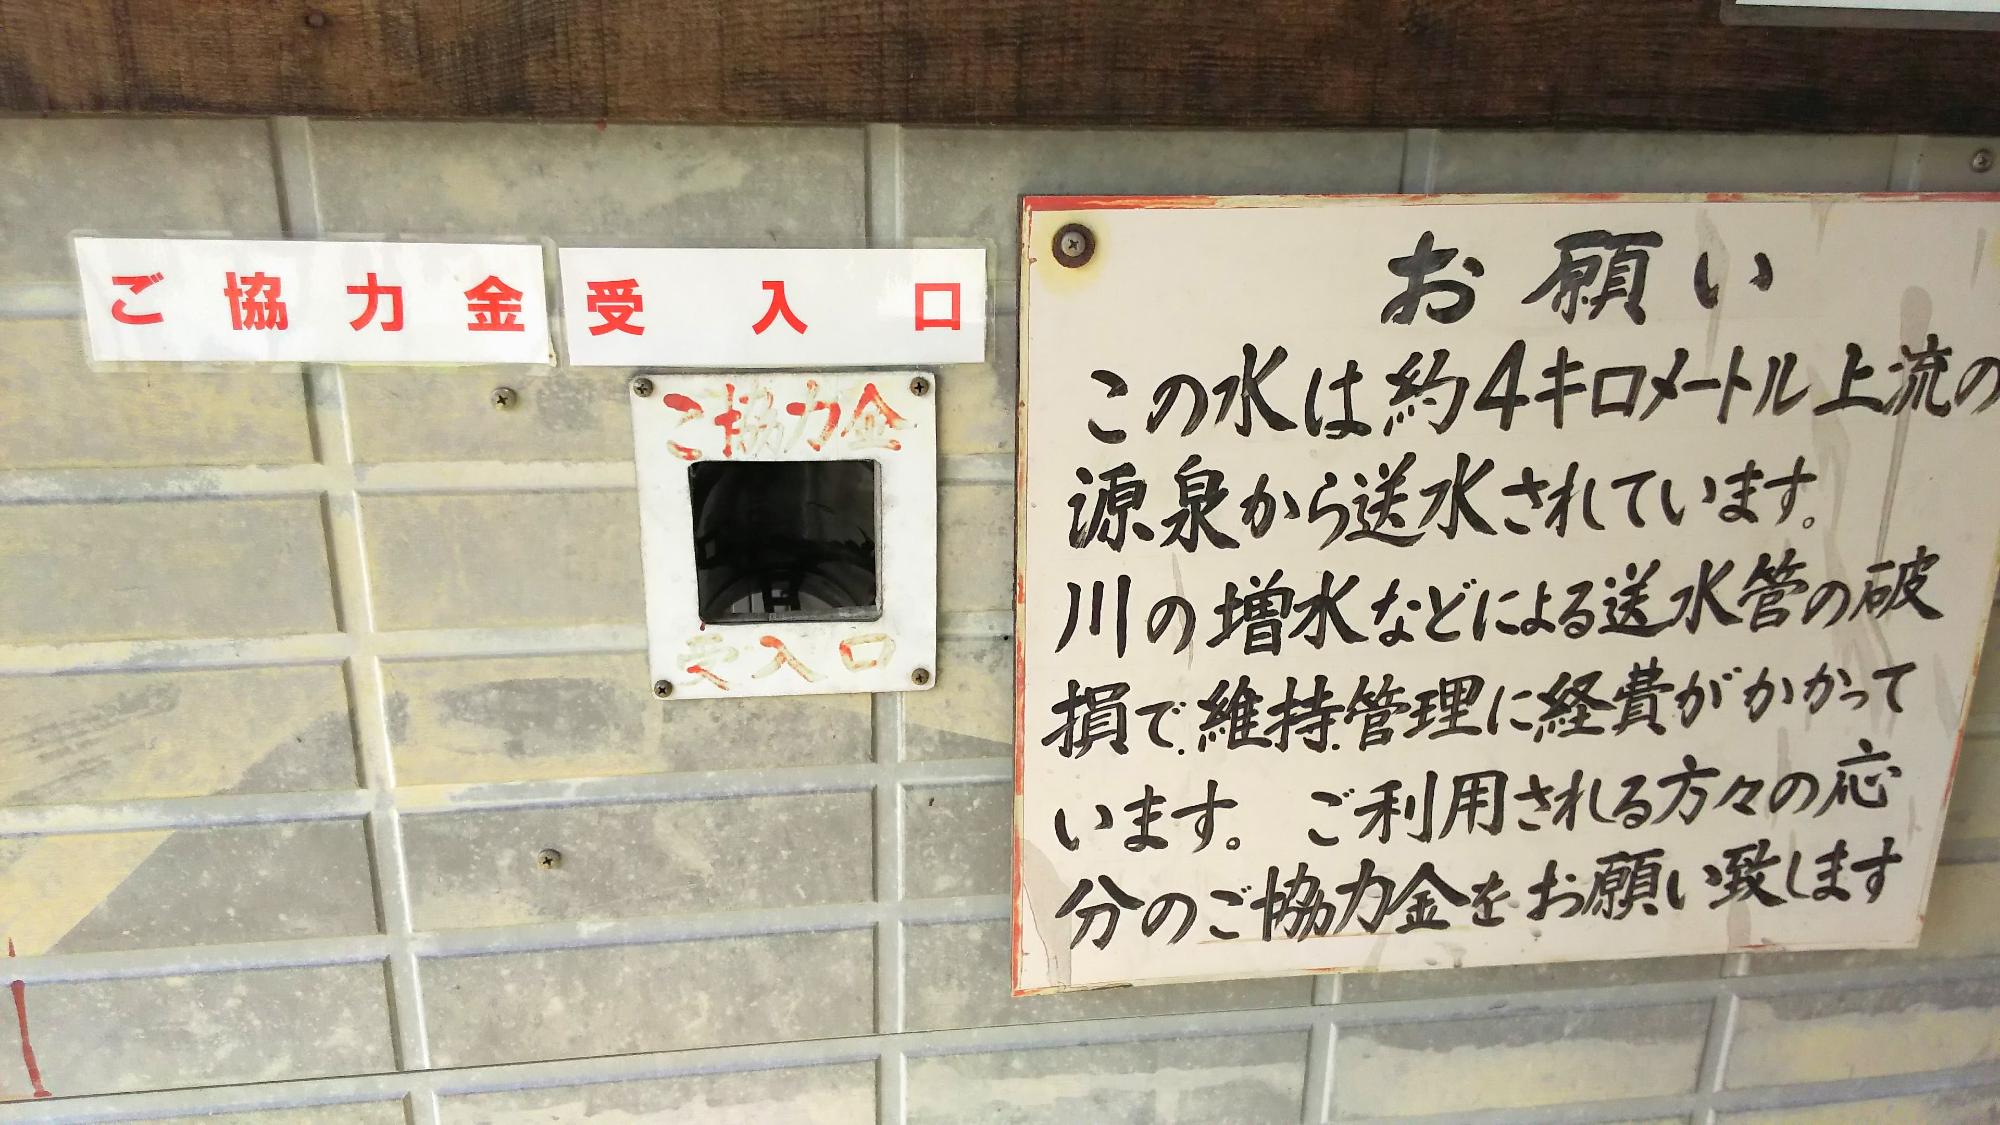 ご協力金受入口
ご協力金
受入口
お願い
この水は約4キロメートル上流の
源泉から送水されています。
川の増水などによる送水管の破
損で維持管理に経費がかかって
います。ご利用される方々の応
分のご協力金をお願い致します